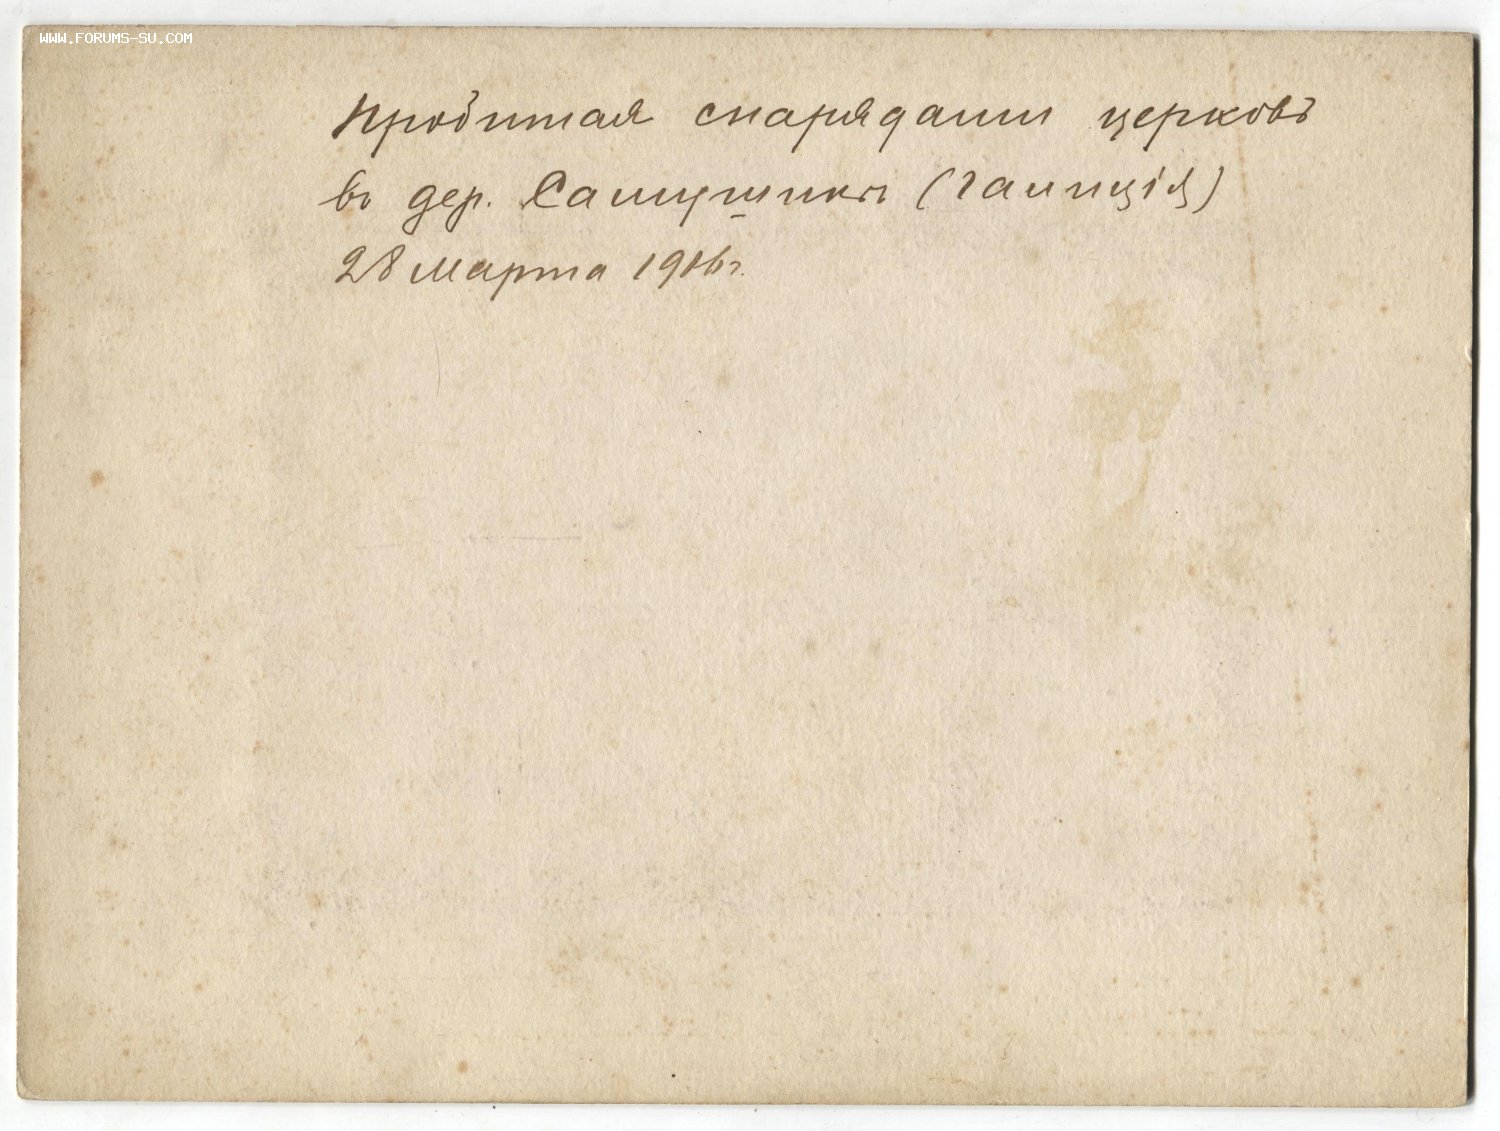 WWW.FORUMS-SU.COM
Пробитая снарядами церковь
въ дер. Самушинъ (Галиція)
28 марта 1916 г.